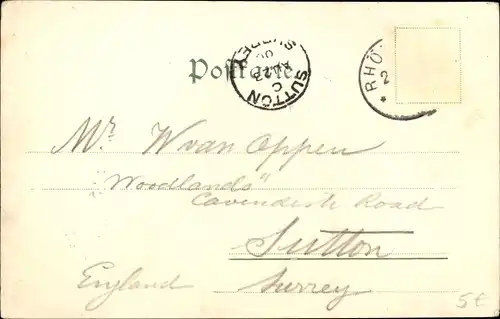 Postkarte
SUTTON
SURREY
C
AU 23
00
RHÖ
2
*
Mr. W van Oppen
"Woodlands"
Cavendish Road
Sutton
England
Surrey
5€